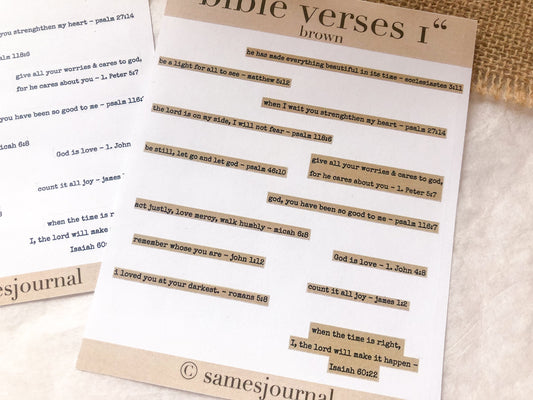 you strenghthen my heart - psalm 27:14
psalm 118:6
give all your worries & cares to god,
for he cares about you - 1. Peter 5:7
you have been so good to me - psalm
micah 6:8
God is love - 1. John
count it all joy - james
when the time is
I, the lord will make
Isaiah 60:
samesjournal
bible verses 1“
brown
he has made everything beautiful in its time - ecclesiastes 3:11
be a light for all to see - matthew 5:12
when I wait you strenghthen my heart - psalm 27:14
the lord is on my side, I will not fear - psalm 118:6
be still, let go and let god - psalm 46:10
give all your worries & cares to god,
for he cares about you - 1. Peter 5:7
god, you have been so good to me - psalm 116:7
act justly, love mercy, walk humbly - micah 6:8
remember whose you are - john 1:12
God is love - 1. John 4:8
i loved you at your darkest. - romans 5:8
count it all joy - james 1:2
when the time is right,
I, the lord will make it happen -
Isaiah 60:22
© samesjournal